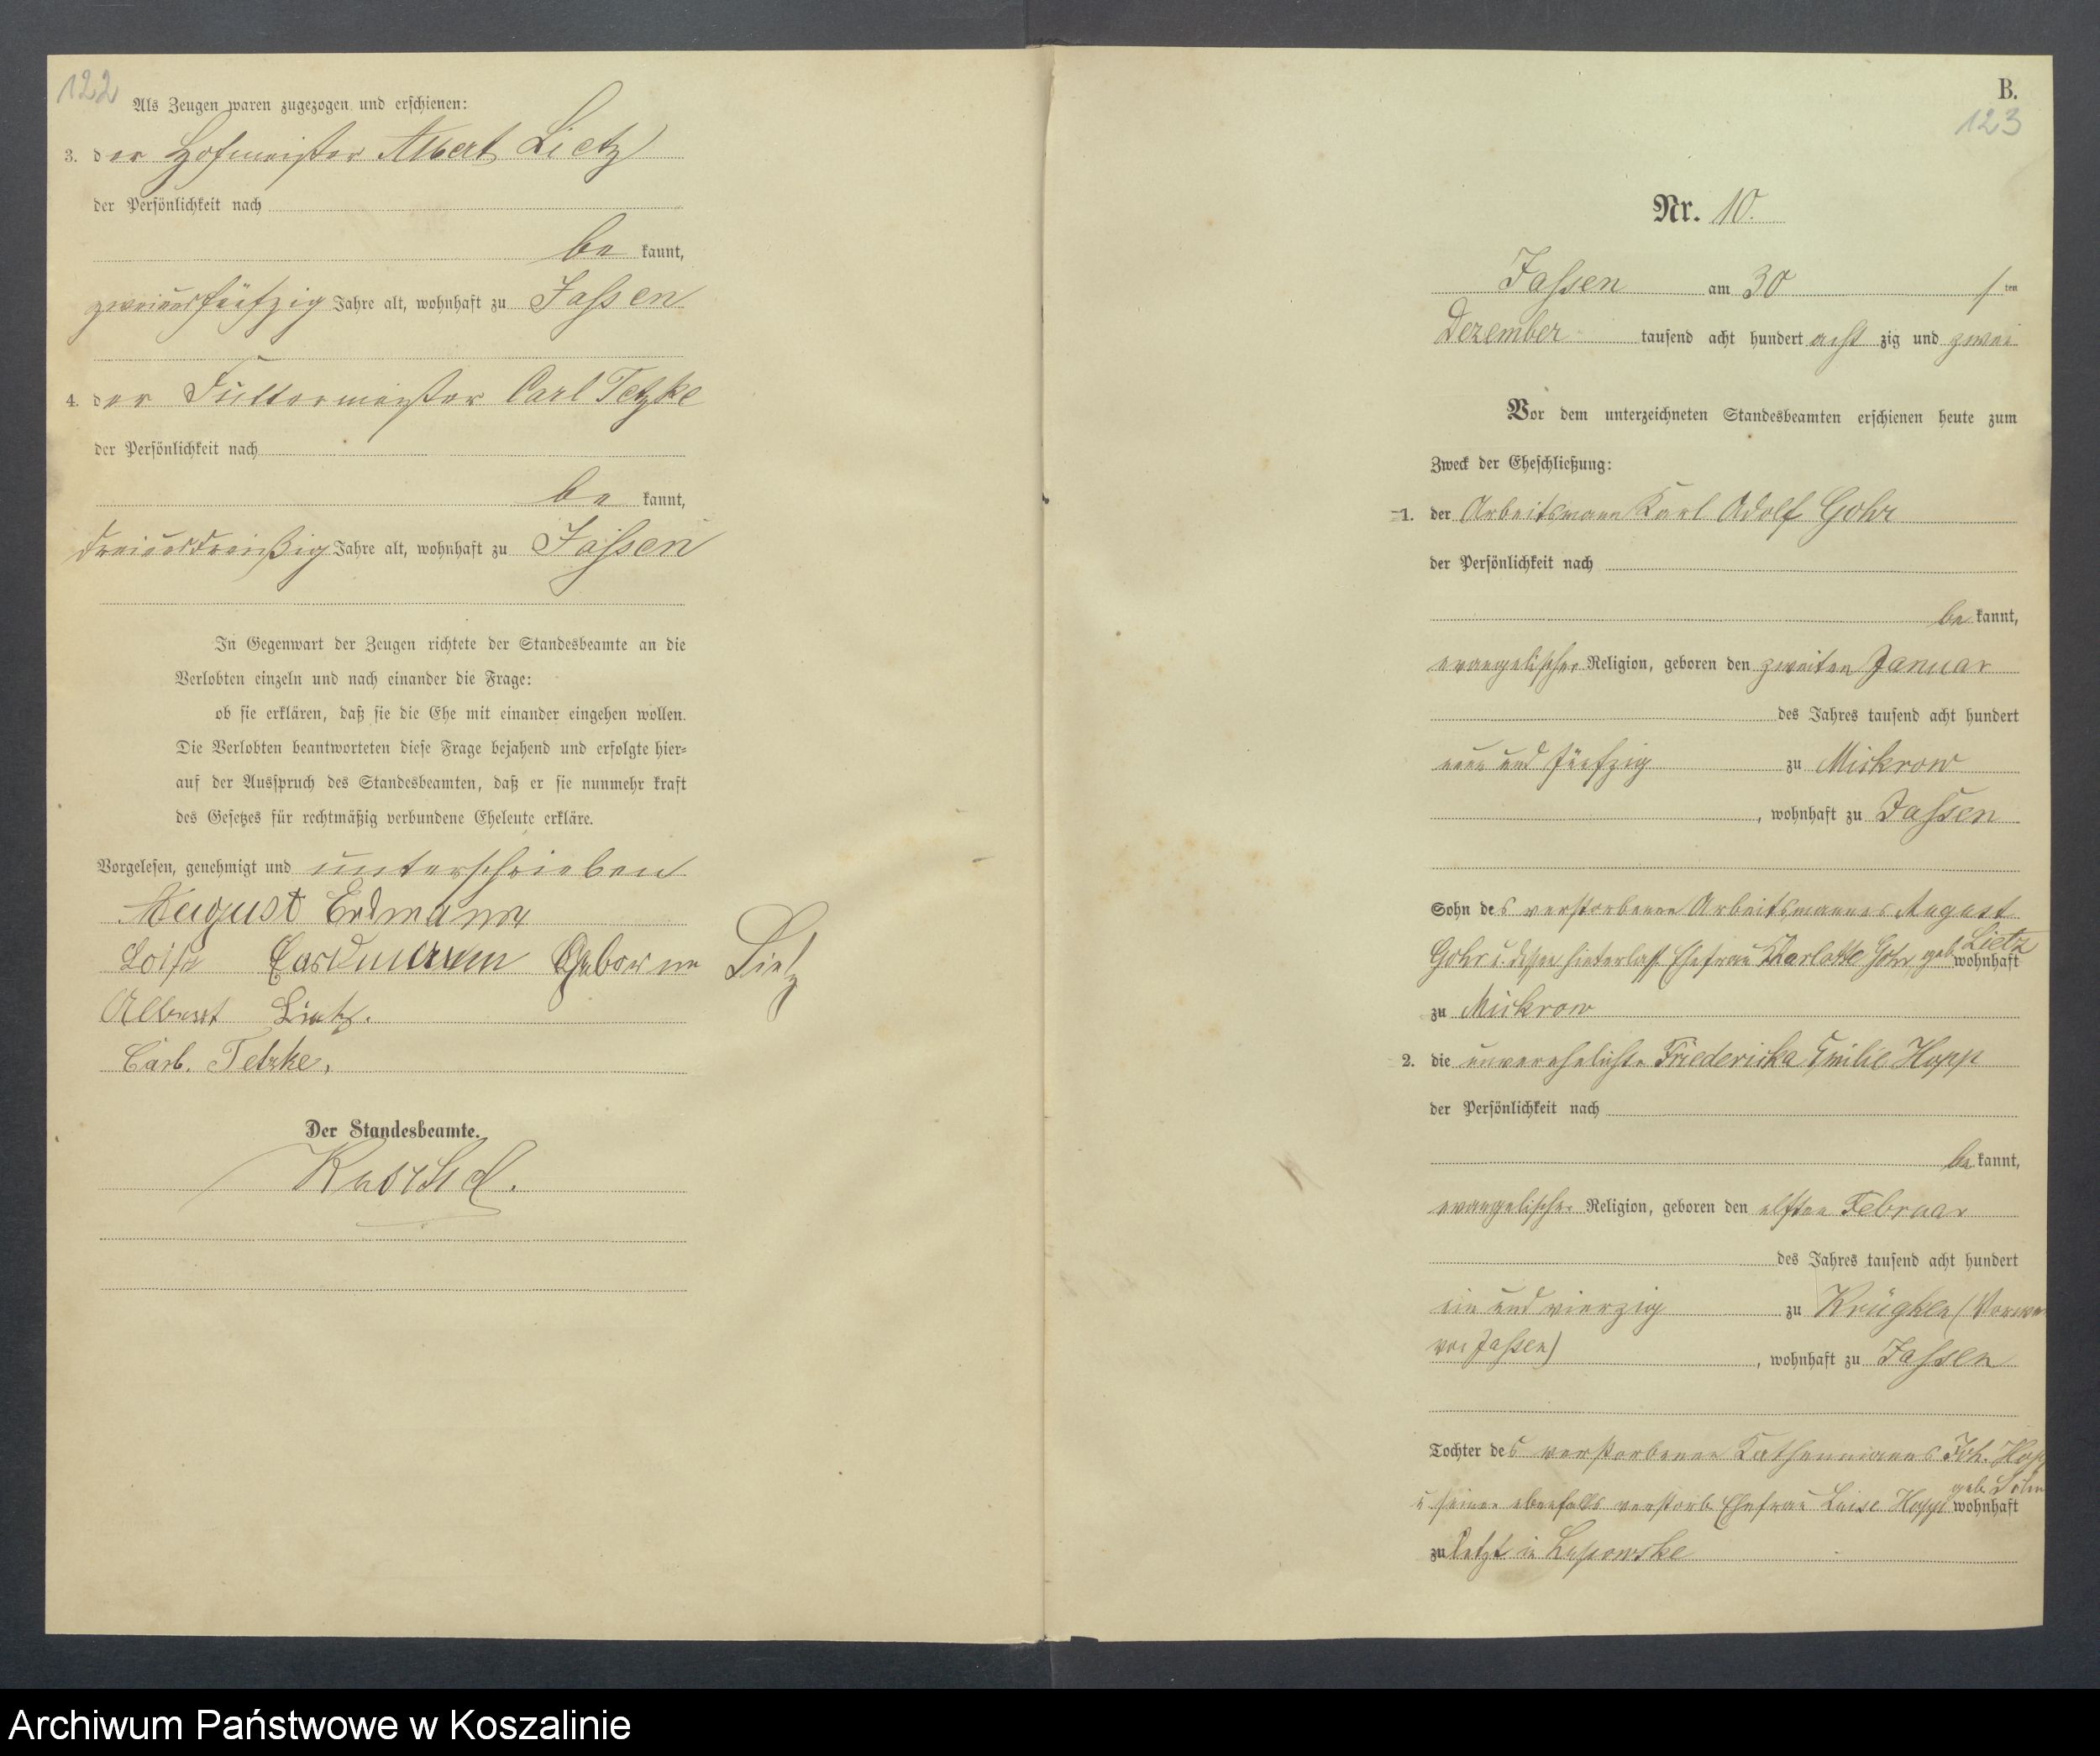 122
Als Zeugen waren zugezogen und erschienen:
3. der Hofmeister Albert Lietz
der Persönlichkeit nach
be kannt,
zweiundfünfzig Jahre alt, wohnhaft zu Jassen
4. der Futtermeister Carl Tetzke
der Persönlichkeit nach
be kannt,
dreiunddreißig Jahre alt, wohnhaft zu Jassen
In Gegenwart der Zeugen richtete der Standesbeamte an die
Verlobten einzeln und nach einander die Frage:
ob sie erklären, daß sie die Ehe mit einander eingehen wollen.
Die Verlobten beantworteten diese Frage bejahend und erfolgte hier-
auf der Ausspruch des Standesbeamten, daß er sie nunmehr kraft
des Gesetzes für rechtmäßig verbundene Eheleute erkläre.
Vorgelesen, genehmigt und unterschrieben
August Erdmann
Geborne Lietz
Albert Lietz.
Carl. Tetzke,
Der Standesbeamte.
B.
123
Nr. 10.
Jassen am 30 ten
Dezember tausend acht hundert acht zig und zwei
Vor dem unterzeichneten Standesbeamten erschienen heute zum
Zweck der Eheschließung:
1. der Arbeitsmann Karl Adolf Gohr
der Persönlichkeit nach
be kannt,
evangelischer Religion, geboren den zweiten Januar
des Jahres tausend acht hundert
neun und fünfzig zu Mickrow
, wohnhaft zu Jassen
Sohn des verstorbenen Arbeitsmannes August
Gohr u. dessen hinterlass. Ehefrau Charlotte Gohr geb. Lietz wohnhaft
zu Mickrow
2. die unverehelichte Friedericka Emilie Hopp
der Persönlichkeit nach
be kannt,
evangelischer Religion, geboren den elften Februar
des Jahres tausend acht hundert
ein und vierzig zu Krügken (
Jassen) , wohnhaft zu Jassen
Tochter des verstorbenen Kathenmanns Joh. Hopp
u seiner ebenfalls verstorb. Ehefrau Luise Hopp geb. wohnhaft
zu letzt in Lupowske
Archiwum Państwowe w Koszalinie